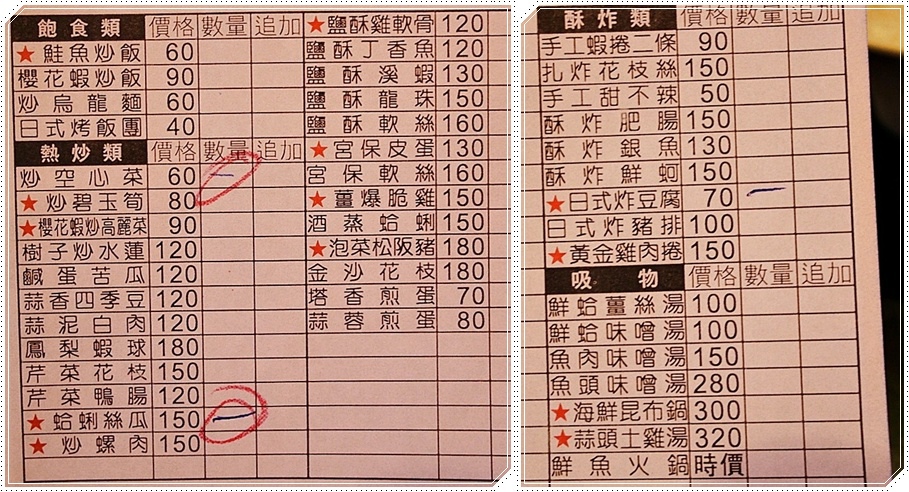 飽食類 價格 數量 追加
★鮭魚炒飯 60
櫻花蝦炒飯 90
炒烏龍麵 60
日式烤飯團 40
熱炒類 價格 數量 追加
炒空心菜 60 一
★炒碧玉筍 80
★櫻花蝦炒高麗菜 90
樹子炒水蓮 120
鹹蛋苦瓜 120
蒜香四季豆 120
蒜泥白肉 120
鳳梨蝦球 180
芹菜花枝 150
芹菜鴨腸 120
★蛤蜊絲瓜 150 一
★炒螺肉 150
★鹽酥雞軟骨 120
鹽酥丁香魚 120
鹽酥溪蝦 130
鹽酥龍珠 150
鹽酥軟絲 160
★宮保皮蛋 130
宮保軟絲 160
★薑爆脆雞 150
酒蒸蛤蜊 150
★泡菜松阪豬 180
金沙花枝 180
塔香煎蛋 70
蒜蓉煎蛋 80
酥炸類 價格 數量 追加
手工蝦捲二條 90
扎炸花枝絲 150
手工甜不辣 50
酥炸肥腸 150
酥炸銀魚 130
酥炸鮮蚵 150
★日式炸豆腐 70 一
日式炸豬排 100
★黃金雞肉捲 150
吸物 價格 數量 追加
鮮蛤薑絲湯 100
鮮蛤味噌湯 100
魚肉味噌湯 150
魚頭味噌湯 280
★海鮮昆布鍋 300
★蒜頭土雞湯 320
鮮魚火鍋 時價